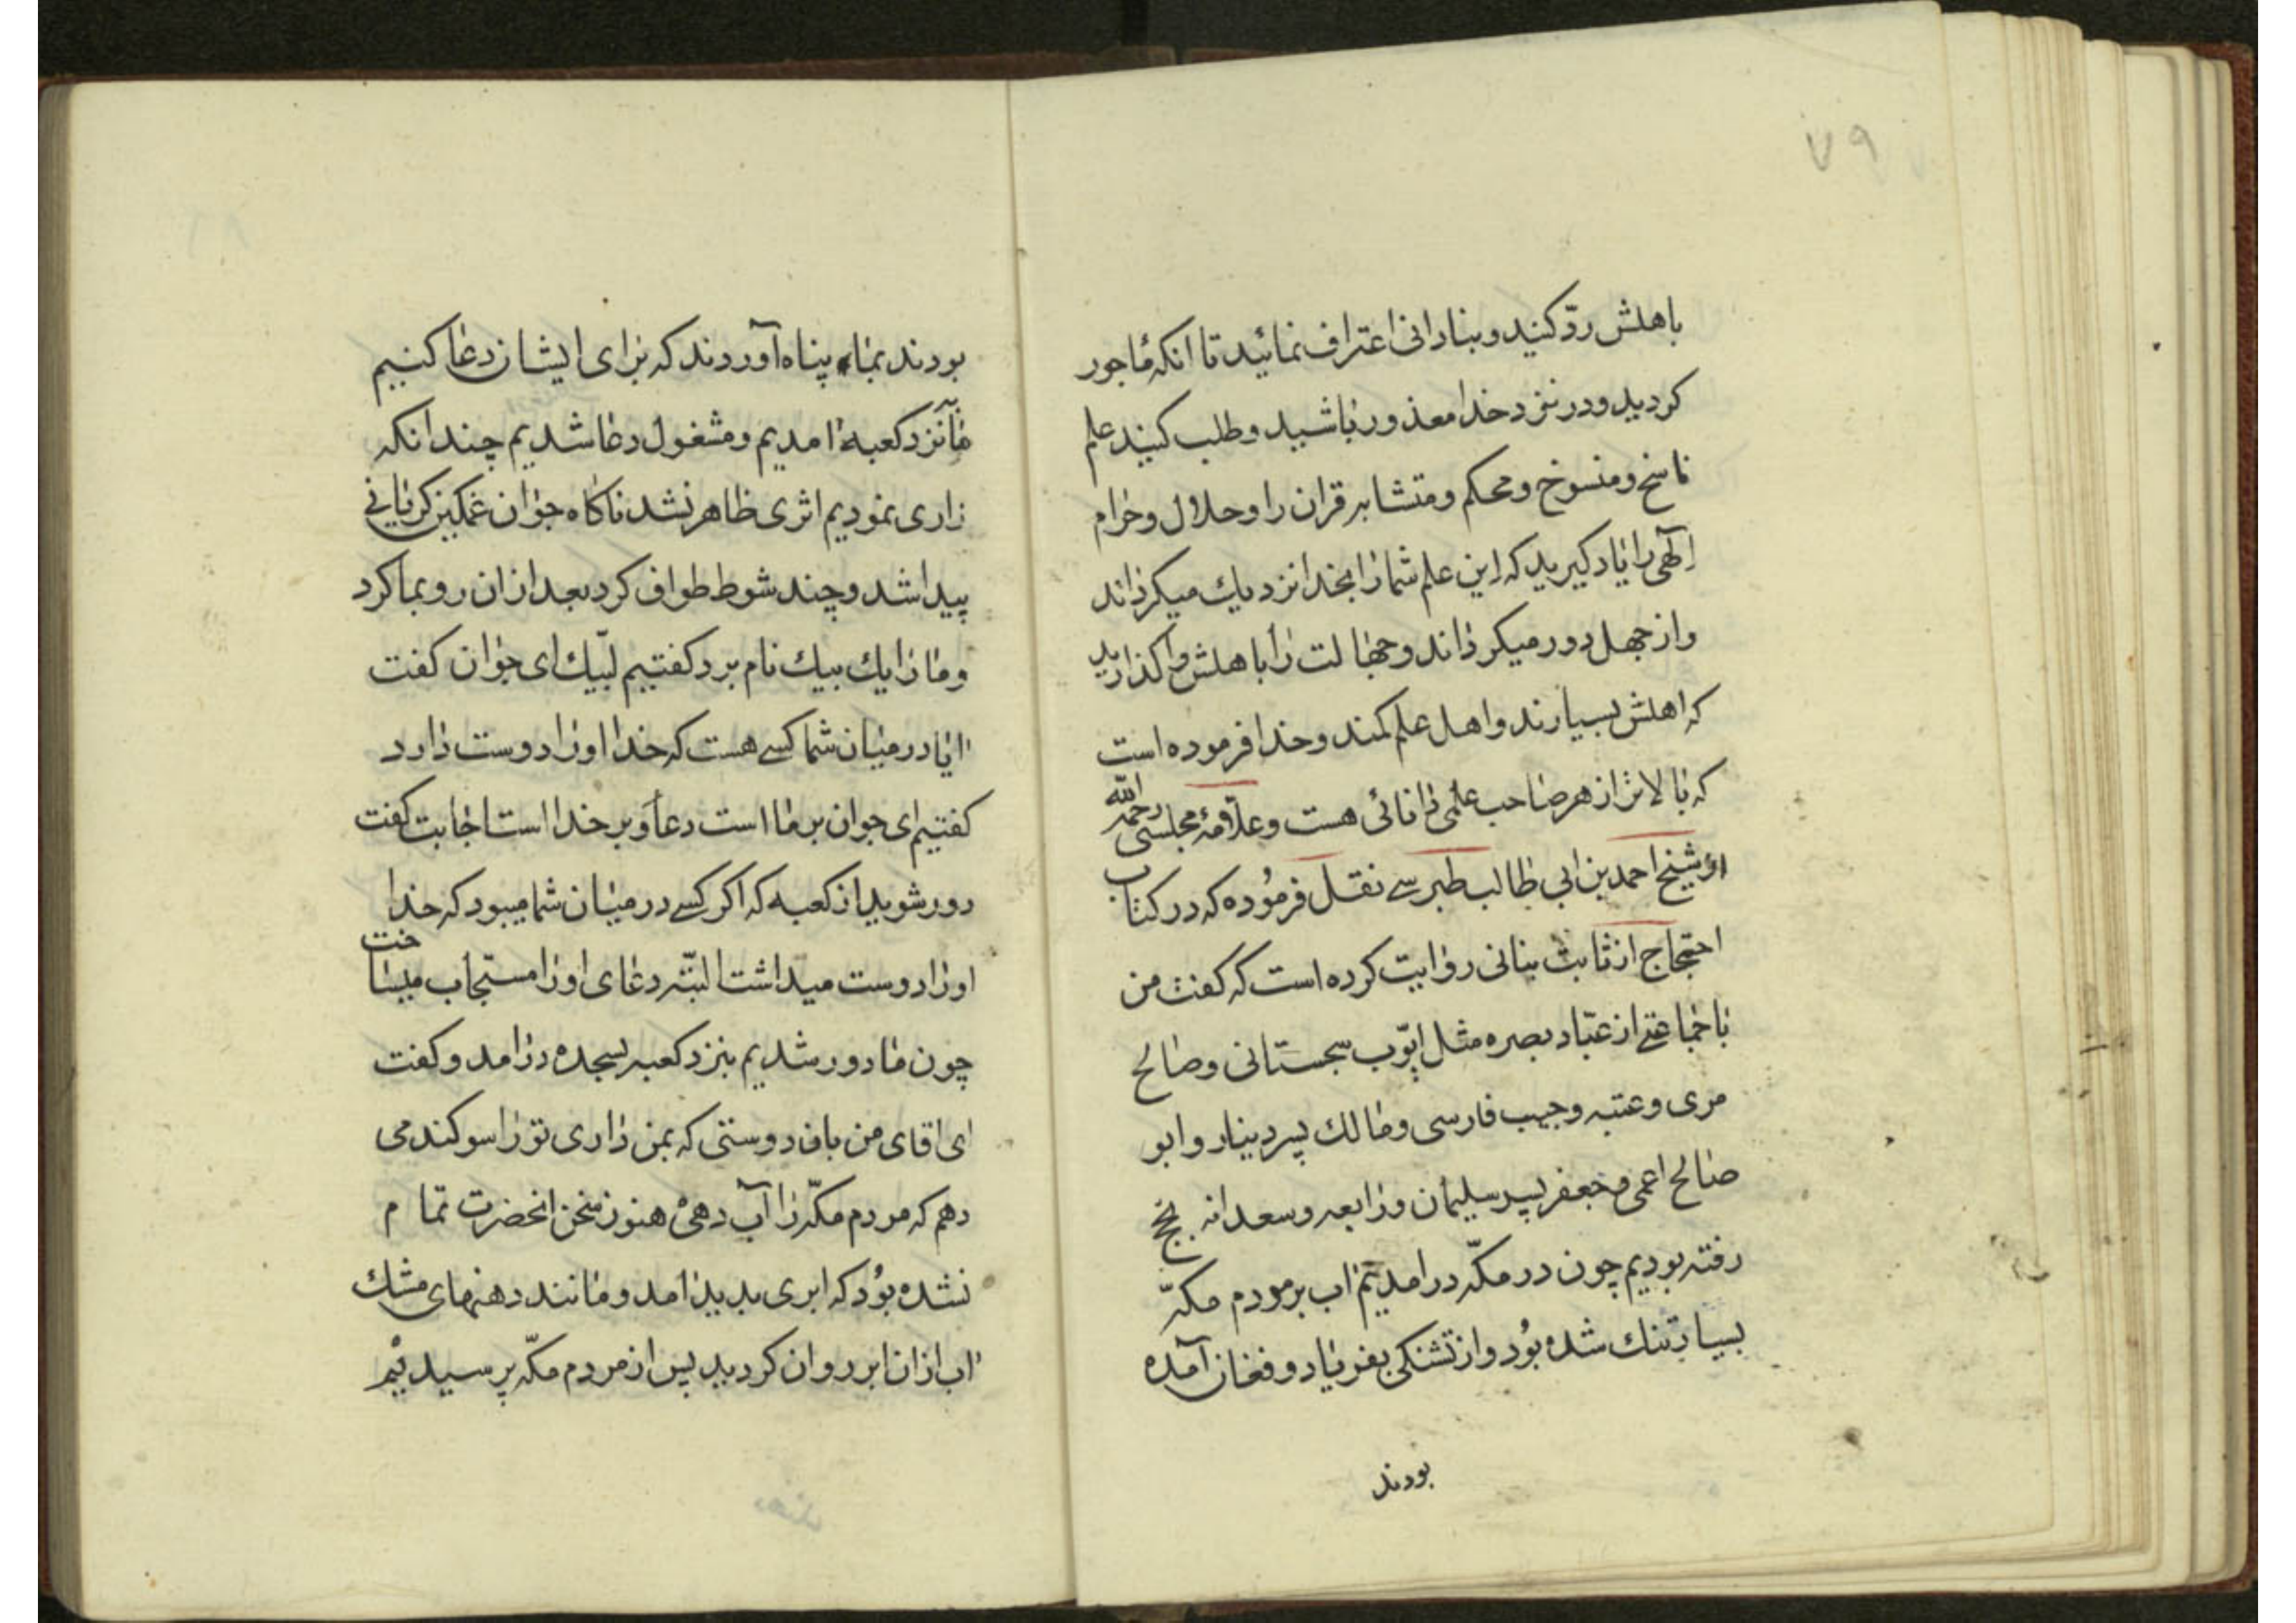 ۷۹
باهلش ردّ کنید و بنادانی اعتراف نمائید تا انکه ماجور
کردید و در نزد خدا معذور باشید و طلب کنید علم
ناسخ و منسوخ و محکم و متشابه قران را و حلال و حرام
إلهی را یاد کیرید که این علم شما را بخدا نزدیك میکرداند
و از جهل دور میکرداند و جهالت را باهلش واکذارید
که اهلش بسیارند و اهل علم کمند و خدا فرموده است
که بالاتر از هر صاحب علمی دانائی هست و علّامهٔ مجلسی رحمه الله
از شیخ احمد بن ابی طالب طبرسے نقل فرمُوده که در کتاب
احتجاج از ثابت بنانی روایت کرده است که کفت من
با جماعتے از عبّاد بصره مثل ایّوب سجستانی و صالح
مری و عتبه و حبیب فارسی و مالك پسر دینار و ابو
صالح اعمی و جعفر پسر سلیمان و رابعه و سعدانه بحج
رفته بودیم چون در مکّه درامدیم اب بر مردم مکّه
بسیار تنك شده بُود و از تشنکی بفریاد و فغان آمده
بودند
بودند بما پناه آوردند که برای ایشان دعا کنیم
ما نزد کعبه امدیم و مشغول دعا شدیم چندانکه
زاری نمودیم اثری ظاهر نشد ناکاه جوان غمکین کریانی
پیدا شد و چند شوط طواف کرد بعد ازان رو بما کرد
و ما را یك بیك نام برد کفتیم لبّیك ای جوان کفت
ایا در میان شما کسے هست که خدا او را دوست دارد
کفتیم ای جوان بر ما است دعا و بر خدا است اجابت کفت
دور شوید از کعبه که اکر کسے در میان شما میبود که خدا
او را دوست میداشت البتّه دعای او را مستجاب میساخت
چون ما دور شدیم بنزد کعبه بسجده درامد و کفت
ای اقای من بان دوستی که بمن داری تو را سوکند می
دهم که مردم مکّه را آب دهی هنوز سخن انحضرت تمام
نشده بُود که ابری پدید امد و مانند دهنهای مشك
اب ازان ابر روان کردید پس از مردم مکّه پرسیدیم